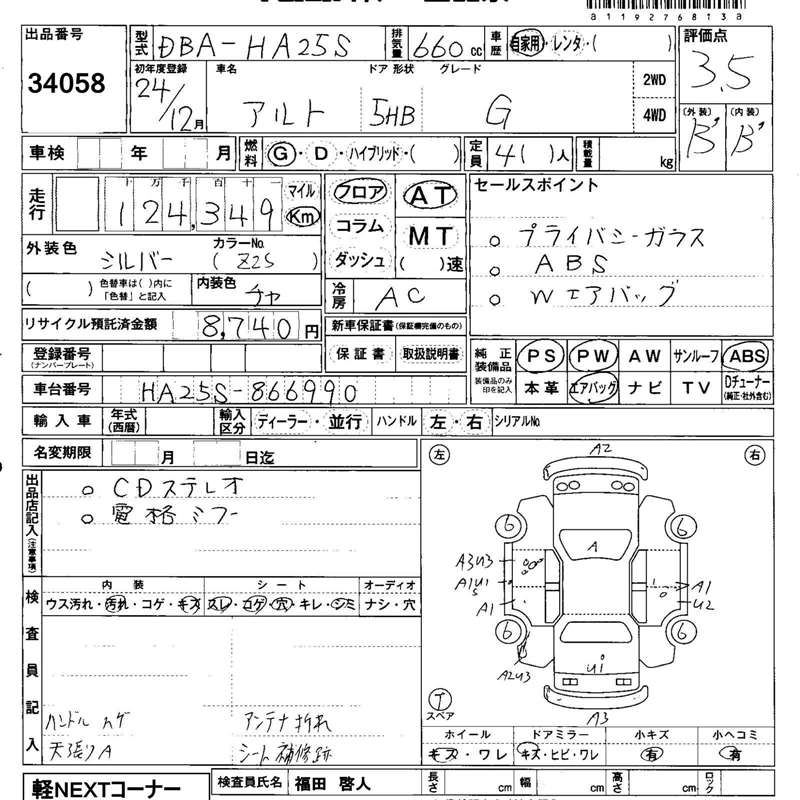 a119276813a
出品番号
34058
型式 DBA-HA25S 排気量 660 cc 車歴 自家用・レンタ・( )
評価点
3.5
初年度登録 24/12月
車名 アルト
ドア 形状 5HB
グレード G
2WD
4WD
(外装) B' (内装) B'
車検 年 月 燃料 G・D・ハイブリッド・( ) 定員 4( )人 積載量 kg
走行 十 万 千 百 十 一
124,349 マイル Km
フロア AT
コラム MT
ダッシュ ( )速
セールスポイント
○ プライバシーガラス
○ ABS
○ Wエアバッグ
外装色 シルバー カラーNo. ( Z2S )
( ) 色替車は( )内に「色替」と記入 内装色 チャ
冷房 AC
リサイクル預託済金額 8,740 円
新車保証書(保証欄完備のもの)
保証書 取扱説明書
登録番号
(ナンバープレート)
純正装備品 PS PW AW サンルーフ ABS
装備品のみ印を記入 本革 エアバッグ ナビ TV Dチューナー(純正・社外含む)
車台番号 HA25S-866990
輸入車 年式(西暦) 輸入区分 ディーラー・並行 ハンドル 左・右 シリアルNo.
名変期限 月 日迄
出品店記入(注意事項)
○ CDステレオ
○ 電格ミラー
左 右
A2
6 6
A
A3U3
A1U1
S
A1
A1
U2
6 6
A2U3
U1
A3
T
スペア
検査員記入
内装 シート オーディオ
ウス汚れ・汚れ・コゲ・キズ スレ・コゲ・穴・キレ・シミ ナシ・穴
ハンドル カゲ アンテナ折れ
天張りA シート補修跡
ホイール ドアミラー 小キズ 小ヘコミ
キズ・ワレ キズ・ヒビ・ワレ 有 有
軽NEXTコーナー 検査員氏名 福田 啓人 長さ cm 幅 cm 高さ cm ロック